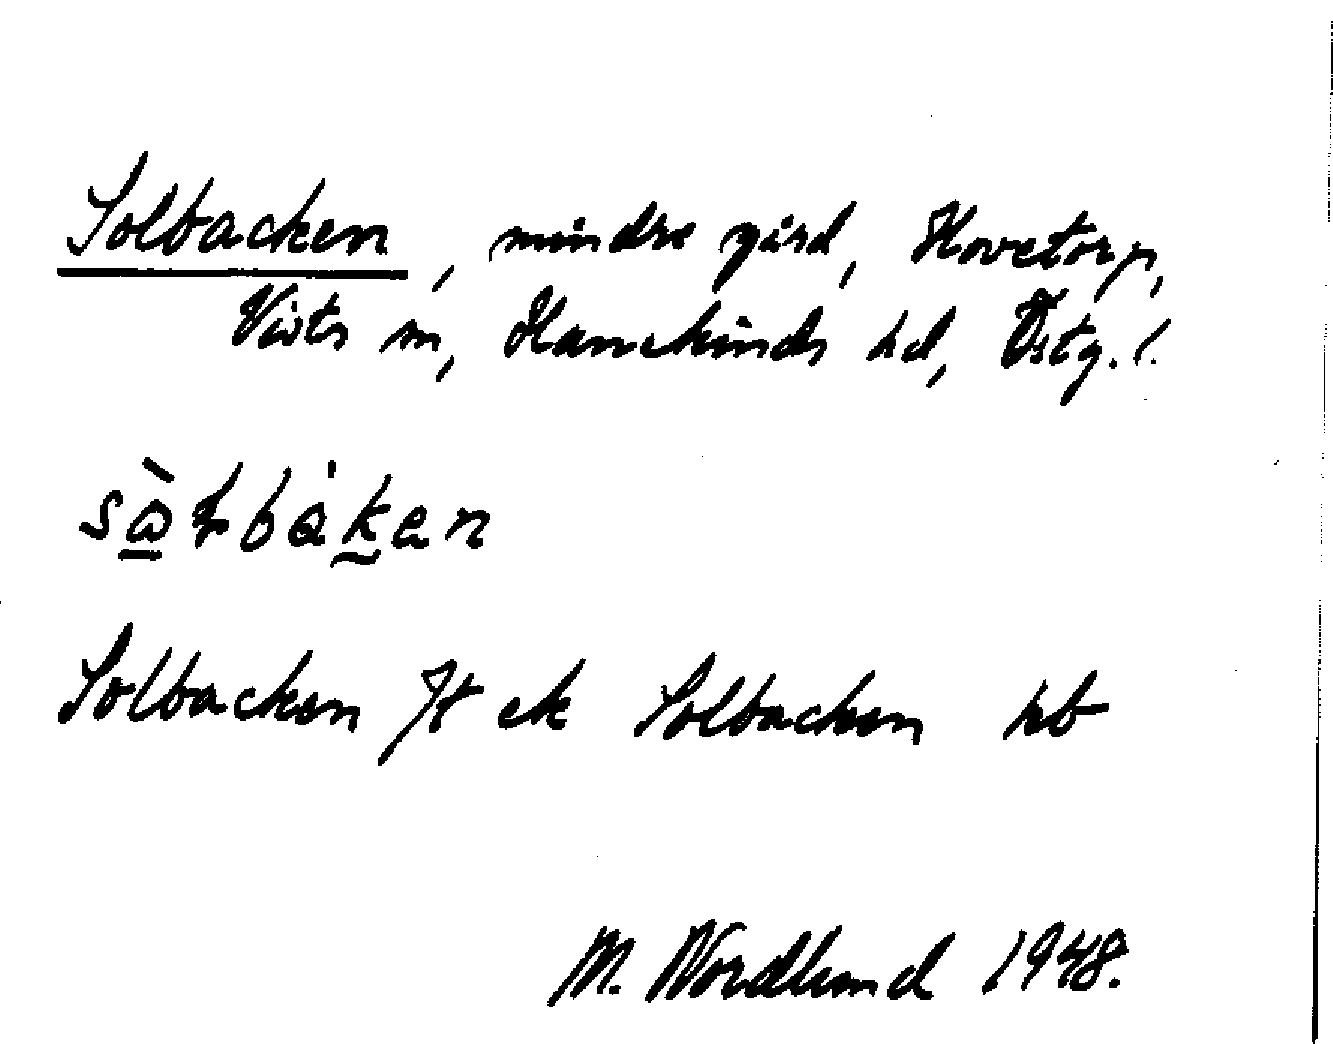 Solbacken, mindre gård, Hovetorp,
Vists sn, Hanekinds hd, Östg. l.
sὼɫbàkan
Solbacken Jr ek Solbacken hb
M. Nordlund 1948.